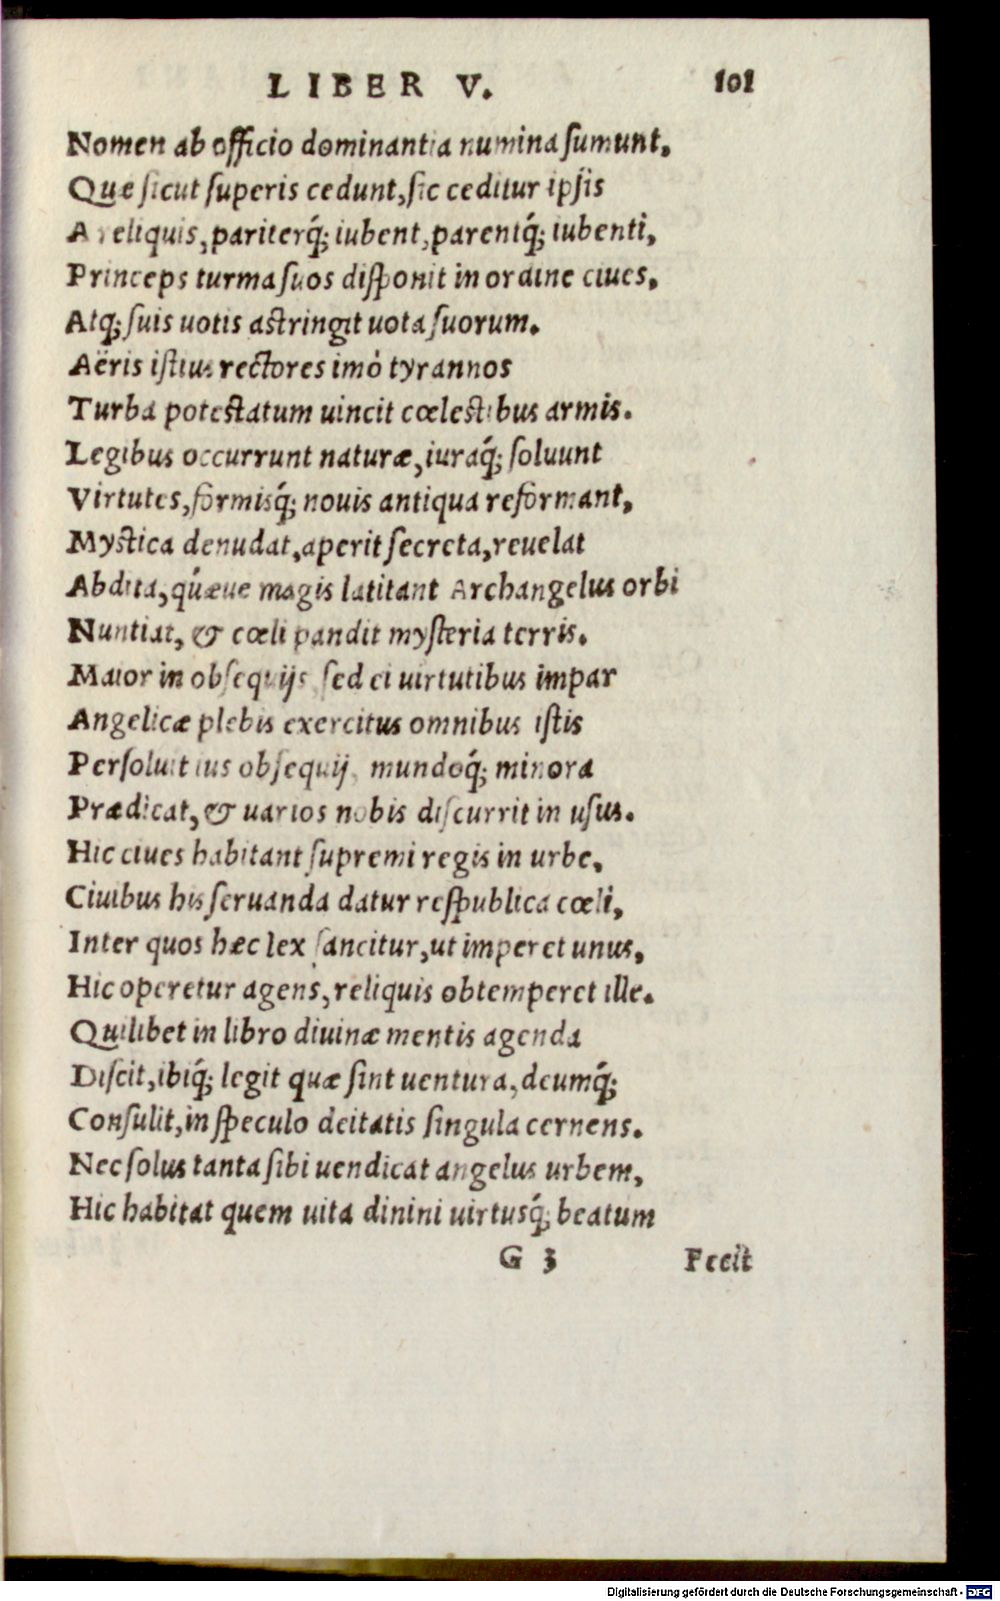 LIBER V. 101
Nomen ab officio dominantia numina ſumunt,
Quæ ſicut ſuperis cedunt, ſic ceditur ipſis
A reliquis, pariterq́; iubent, parentq́; iubenti,
Princeps turma ſuos diſponit in ordine ciues,
Atq; ſuis uotis aſtringit uota ſuorum.
Aëris iſtius rectores imò tyrannos
Turba poteſtatum uincit cœleſtibus armis.
Legibus occurrunt naturæ, iuraq́; ſoluunt
Virtutes, formisq́; nouis antiqua reformant,
Myſtica denudat, aperit ſecreta, reuelat
Abdita, quǽue magis latitant Archangelus orbi
Nuntiat, & cœli pandit myſteria terris.
Maior in obſequijs ſed ei uirtutibus impar
Angelicæ plebis exercitus omnibus iſtis
Perſoluit ius obſequij, mundoq́; minora
Prædicat, & uarios nobis diſcurrit in uſus.
Hic ciues habitant ſupremi regis in urbe,
Ciuibus his ſeruanda datur reſpublica cœli,
Inter quos hæc lex ſancitur, ut imperet unus,
Hic operetur agens, reliquis obtemperet ille.
Quilibet in libro diuinæ mentis agenda
Diſcit, ibiq́; legit quæ ſint uentura, deumq́;
Conſulit, in ſpeculo deitatis ſingula cernens.
Nec ſolus tanta ſibi uendicat angelus urbem,
Hic habitat quem uita dinini uirtusq́; beatum
G 3 Fecit
Digitalisierung gefördert durch die Deutsche Forschungsgemeinschaft - DFG